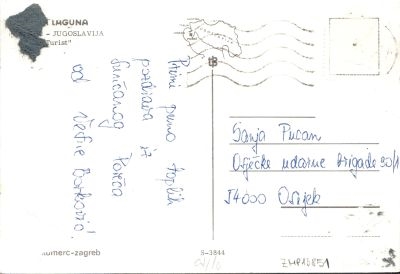 LAGUNA
- JUGOSLAVIJA
Turist"
Primi puno toplih
pozdrava iz
sunčanog Poreča
od Vesne
Sanja Pucan
Osječke udarne brigade 30/1
54000 Osijek
numerc-zagreb
S-3844
ZMP18851